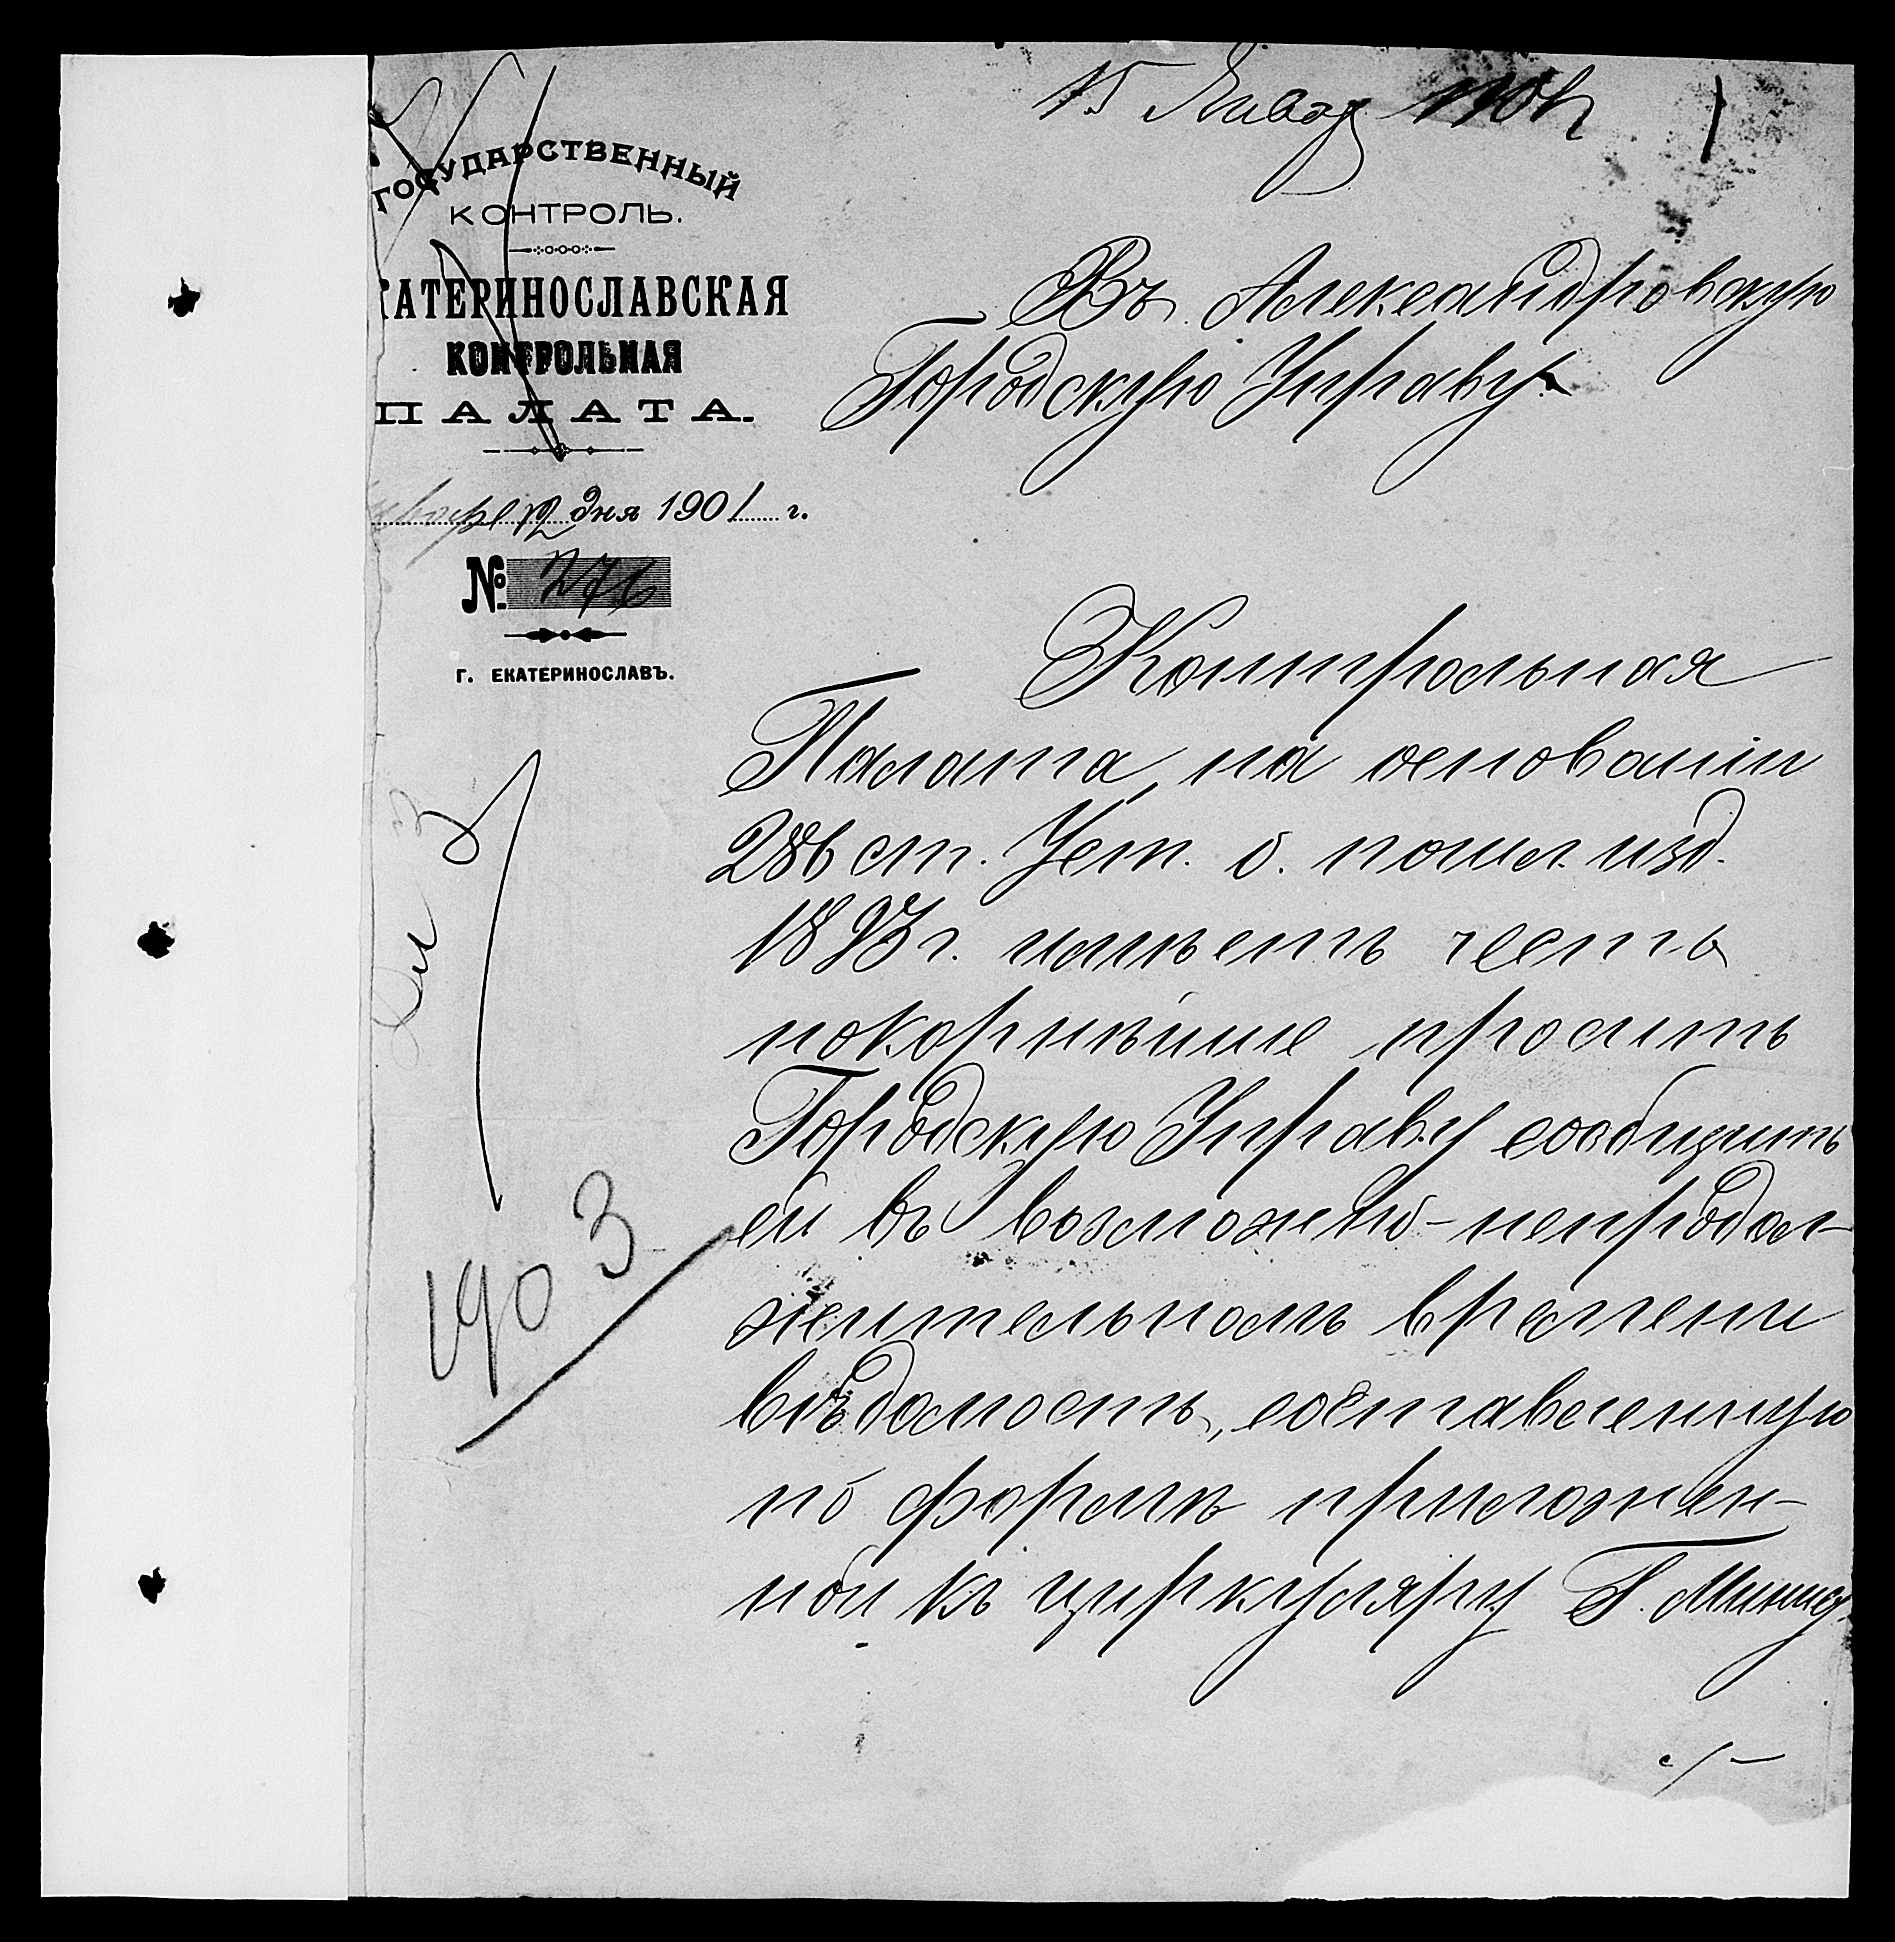 15 Январ 1901
1
ГОСУДАРСТВЕННЫЙ
КОНТРОЛЬ.
КАТЕРИНОСЛАВСКАЯ
КОНТРОЛЬНАЯ
ПАЛАТА.
января 12 дня 1901 г.
№ 276
Г. ЕКАТЕРИНОСЛАВЪ.
Въ Александровскую
Городскую Управу
Контрольная
Палата, на основаніи
286 ст. Уст. о. пошл. изд.
1893 г. имѣетъ честь
покорнѣйше просить
Городскую Управу сообщить
ей въ возможно-непродол-
жительномъ времени
вѣдомость, составленную
по формѣ приложен-
ной къ циркуляру Г. Минис
1903